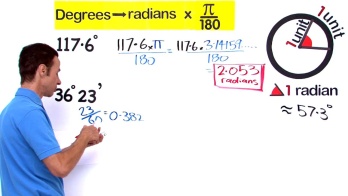 Degrees→radians × π/180
117.6° 117.6×π/180 = 117.6×3.14159..../180
= 2.053 radians
36°23'
23/60 = 0.382
1unit
1unit
1 radian
≈ 57.3°